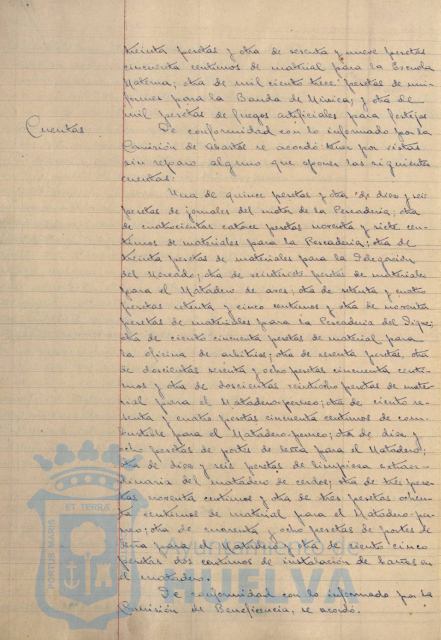 treinta pesetas y otra de sesenta y nueve pesetas
cincuenta centimos de material para la Escuela
Materna; otra de mil ciento trece pesetas de uni-
formes para la Banda de Música; y otra de
mil pesetas de fuegos artificiales para festejos
Cuentas
De conformidad con lo informado por la
Comisión de Abastos se acordó tener por vistas
sin reparo alguno que oponer las siguientes
cuentas:
Una de quince pesetas y otra de diez y seis
pesetas de jornales del motor de la Pescadería; otra
de cuatrocientas catorce pesetas noventa y siete cen-
timos de materiales para la Pescadería; otra de
treinta pesetas de materiales para la Delegación
del Mercado; otra de pesetas de materiales
para el Matadero de aves; otra de setenta y cuatro
pesetas setenta y cinco centimos y otra de noventa
pesetas de materiales para la Pescadería del Dique;
otra de ciento cincuenta pesetas de material para
la oficina de arbitrios; otra de sesenta pesetas, otra
de doscientas sesenta y ocho pesetas cincuenta centi-
mos y otra de doscientas veintiocho pesetas de mate-
rial para el Matadero-perneo; otra de ciento se-
senta y cuatro pesetas cincuenta centimos de com-
bustible para el Matadero-perneo; otra de diez y
ocho pesetas de portes de leña para el Matadero;
otra de diez y seis pesetas de limpieza extraor-
dinaria del matadero de cerdos; otra de tres pese-
tas noventa centimos y otra de tres pesetas ochen-
ta centimos de material para el Matadero-per-
neo; otra de cuarenta y ocho pesetas de portes de
leña para el Matadero y otra de ciento cinco
pesetas dos centimos de instalación de en
el matadero.
De conformidad con lo informado por la
Comisión de Beneficencia, se acordó
PORTUS MARIS ET TERRÆ
Ayuntamiento de
HUELVA